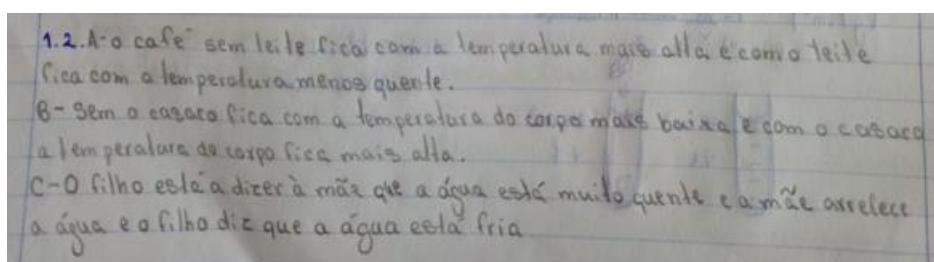 1.2. A-o café sem leite fica com a temperatura mais alta e com o leite
fica com a temperatura menos quente.
B- Sem o casaco fica com a temperatura do corpo mais baixa e com o casaco
a temperatura do corpo fica mais alta.
C-O filho está a dizer à mãe que a água está muito quente e a mãe arrelece
a água e o filho diz que a água está fria